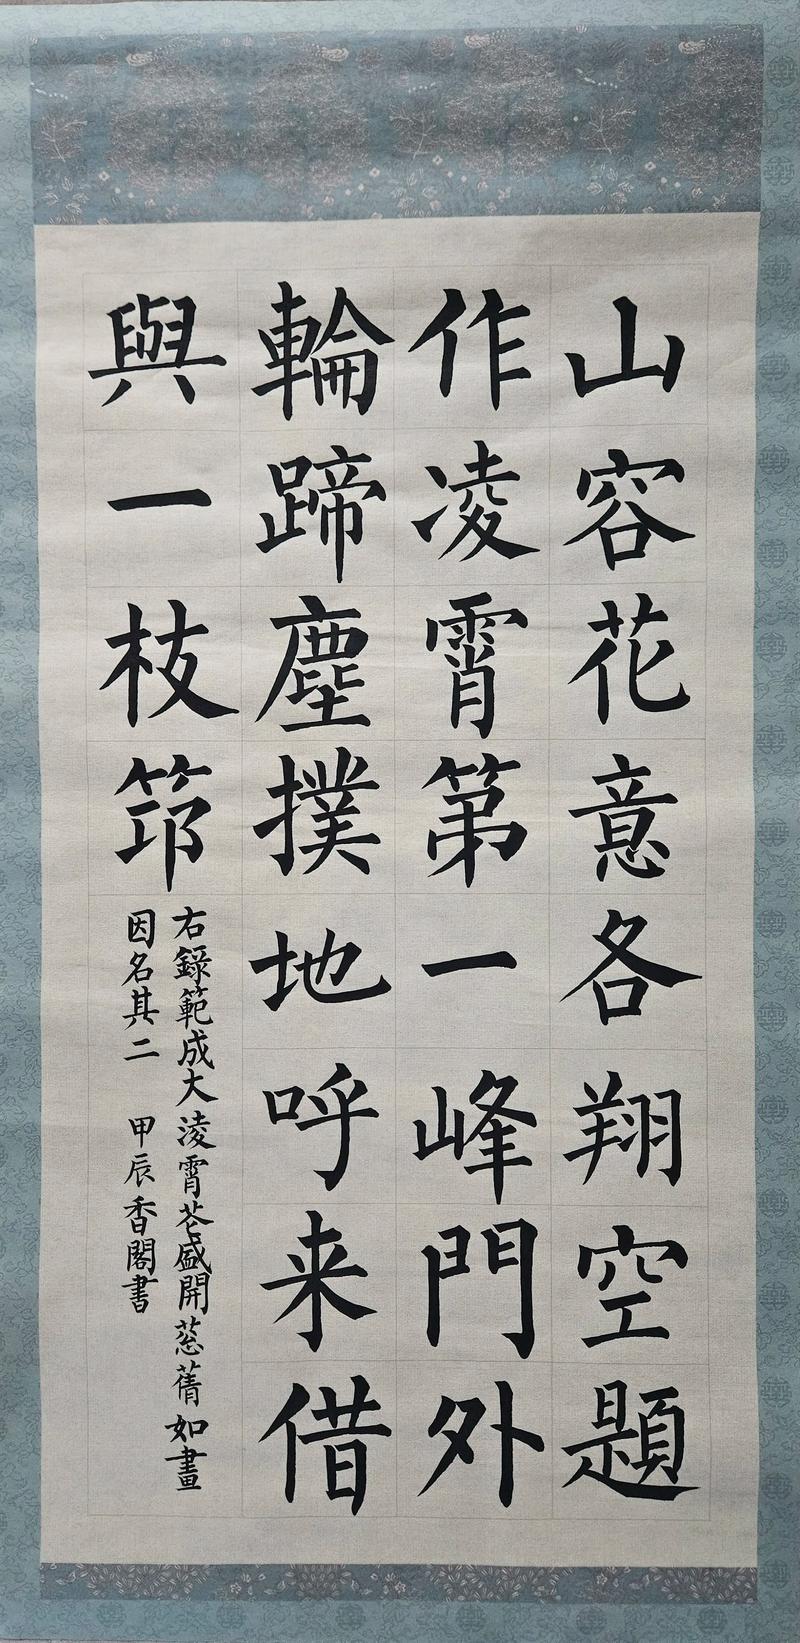 山容花意各翔空題
作凌霄第一峰門外
輪蹄塵撲地呼来借
與一枝筇
右録範成大淩霄花盛開葱蒨如畫
因名其二 甲辰香閣書